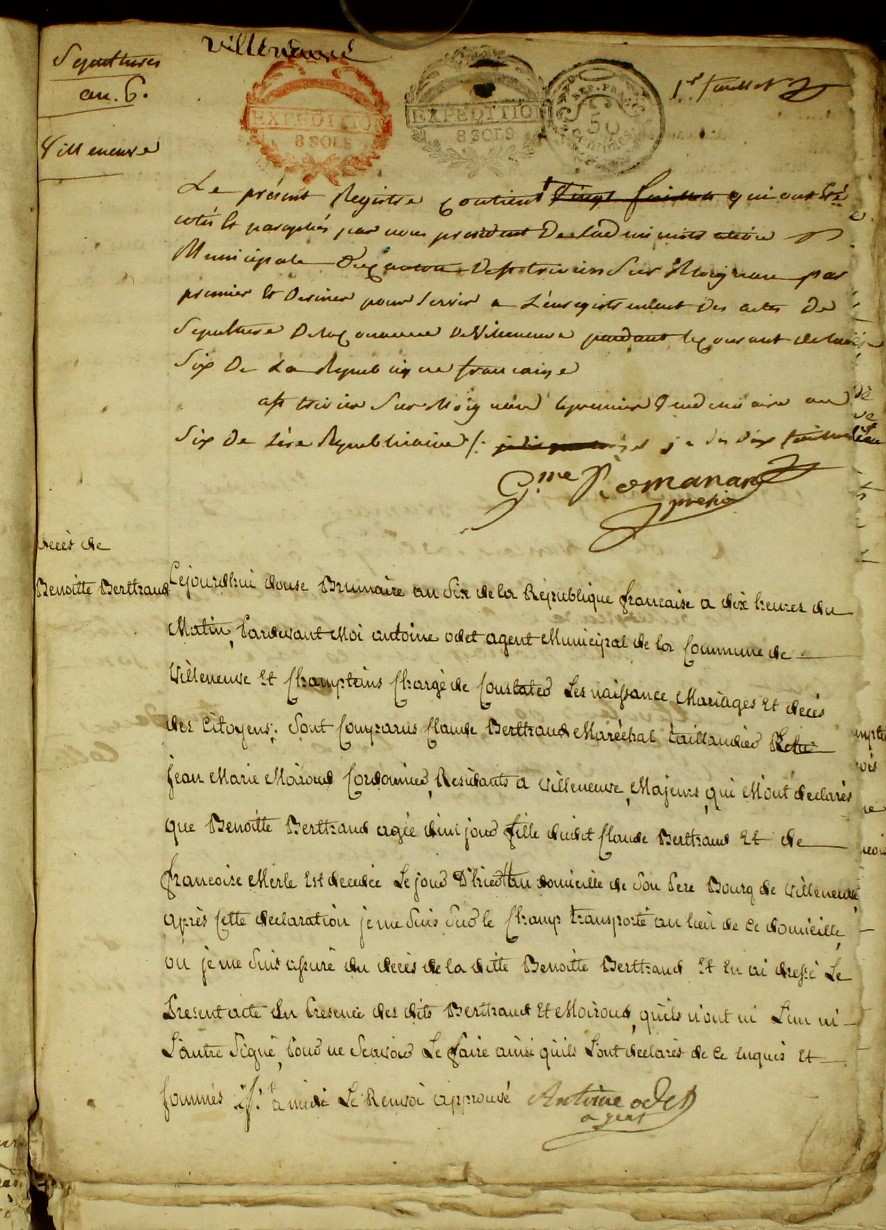 Villeneuve
Sepultures
an. 6.
Villeneuve
EXPEDITIO
8 SOLS
EXPEDITIO
8 SOLS
50
1er feuillet
Le présent Registre contient vingt feuillets qui ont été
cotés et paraphés par nous president De L'administration
Municipale Du Canton De St trivier Sur Moignan par
premier et Dernier pour servir a L'enregistrement Des actes De
Sepulture De la Commune De Villeneuve pendant le Courant de l'année
Six De La Republique francaise
a St trivier Sur Moignan le premier Vendemiaire an
Six De L'ère Republicaine
Gme Romanan
presid
Décès de
Benoitte Berthaud
Cejourdhui douse Brumaire an Six de la République francaise a dix heures du
Matin, Pardevant Moi antoine odet agent Municipal de la Commune de
Villeneuve Et Champteins Chargé de Constater Les naissance Mariages Et décès
des Citoyens, Sont Comparus Claude Berthaud Maréchal taillandier Et
jean Marie Moiroud Cordonnier, Residants a Villeneuve, Majeurs, qui M'ont declarés
que Benoitte Berthaud agée d'un jour fille dudit Claude Berthaud Et de
francoise Merle Est decedée Le jour D'hier au domicille de Son Pere Bourg de Villeneuve
après Cette declaration je me Suis Sur le Champ transporté au lieu de ce domicille,
ou je me Suis assuré du decès de la ditte Benoitte Berthaud Et En ai dressé Le
Present acte En Presence des dits Berthaud Et Moiroud, qu'ils n'ont ni L'un ni
L'autre Signé, Pour ne Scavoir Le faire ainsi qu'ils L'ont declarés de ce Enquis Et
sommés Le Renvoi approuvé
Antoine odet
agent